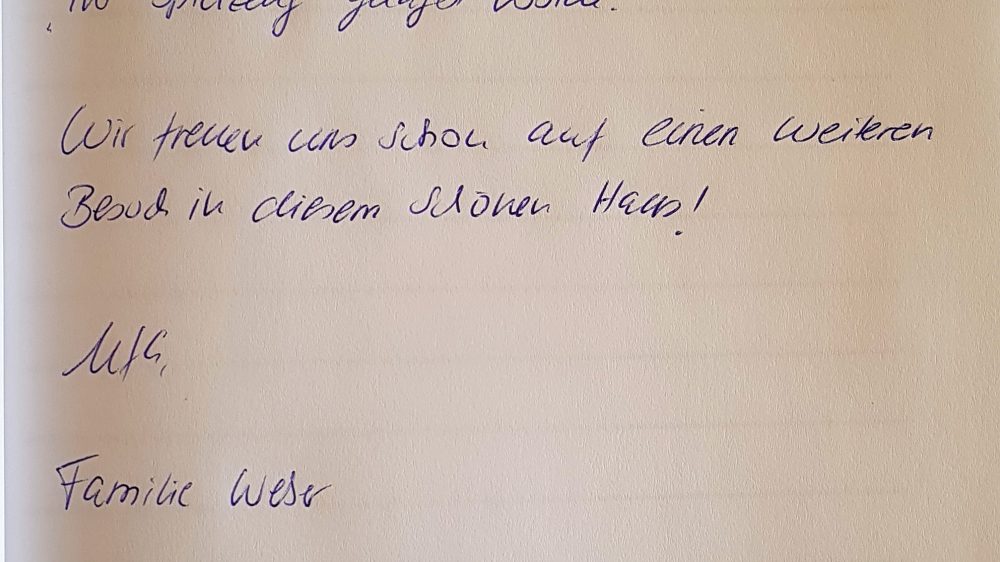 Wir freuen uns schon auf einen weiteren
Besuch in diesem schönen Haus!
MfG,
Familie Weser